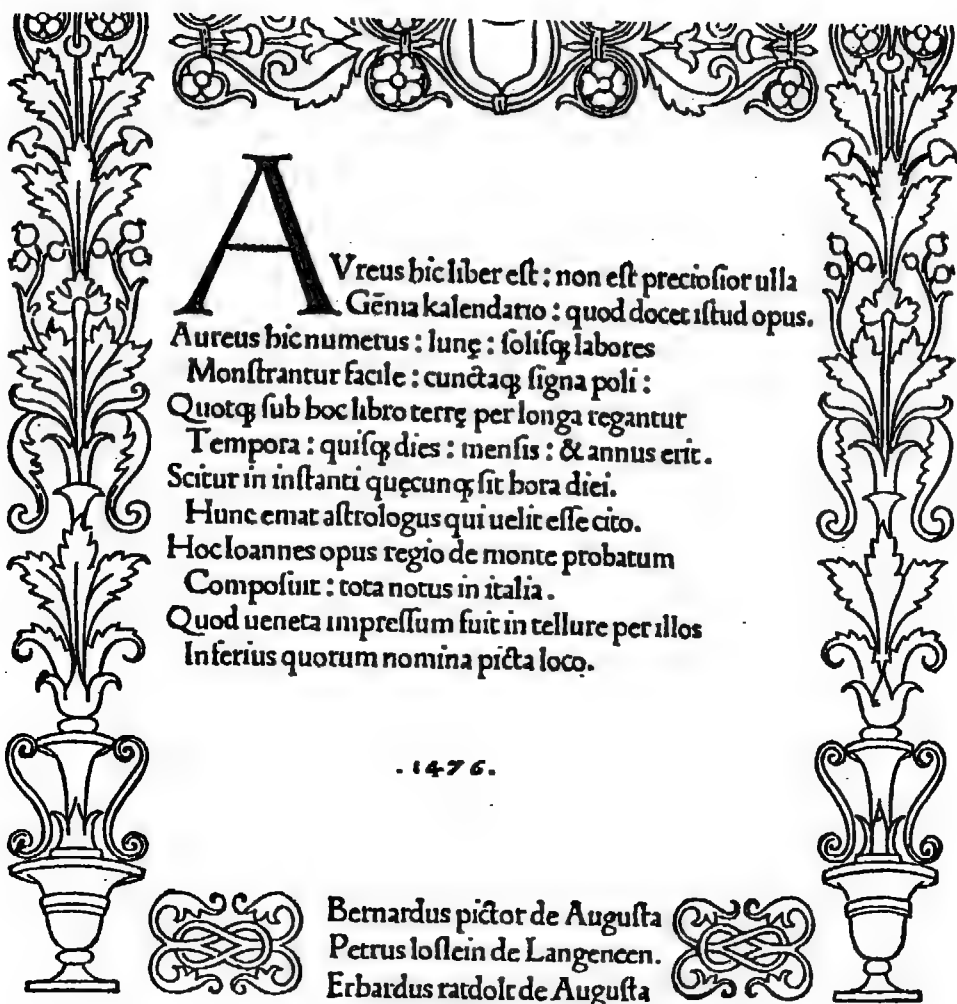 AVreus hic liber est : non est preciosior ulla
Gēma kalendario : quod docet istud opus.
Aureus hic numerus : lunę : solisqꝫ labores
Monstrantur facile : cunctaqꝫ signa poli :
Quotqꝫ sub hoc libro terrę per longa regantur
Tempora : quisqꝫ dies : mensis : & annus erit.
Scitur in instanti quęcunqꝫ sit hora diei.
Hunc emat astrologus qui uelit esse cito.
Hoc Ioannes opus regio de monte probatum
Composuit : tota notus in italia.
Quod ueneta impressum fuit in tellure per illos
Inferius quorum nomina picta loco.
.1476.
Bernardus pictor de Augusta
Petrus loslein de Langencen.
Erhardus ratdolt de Augusta